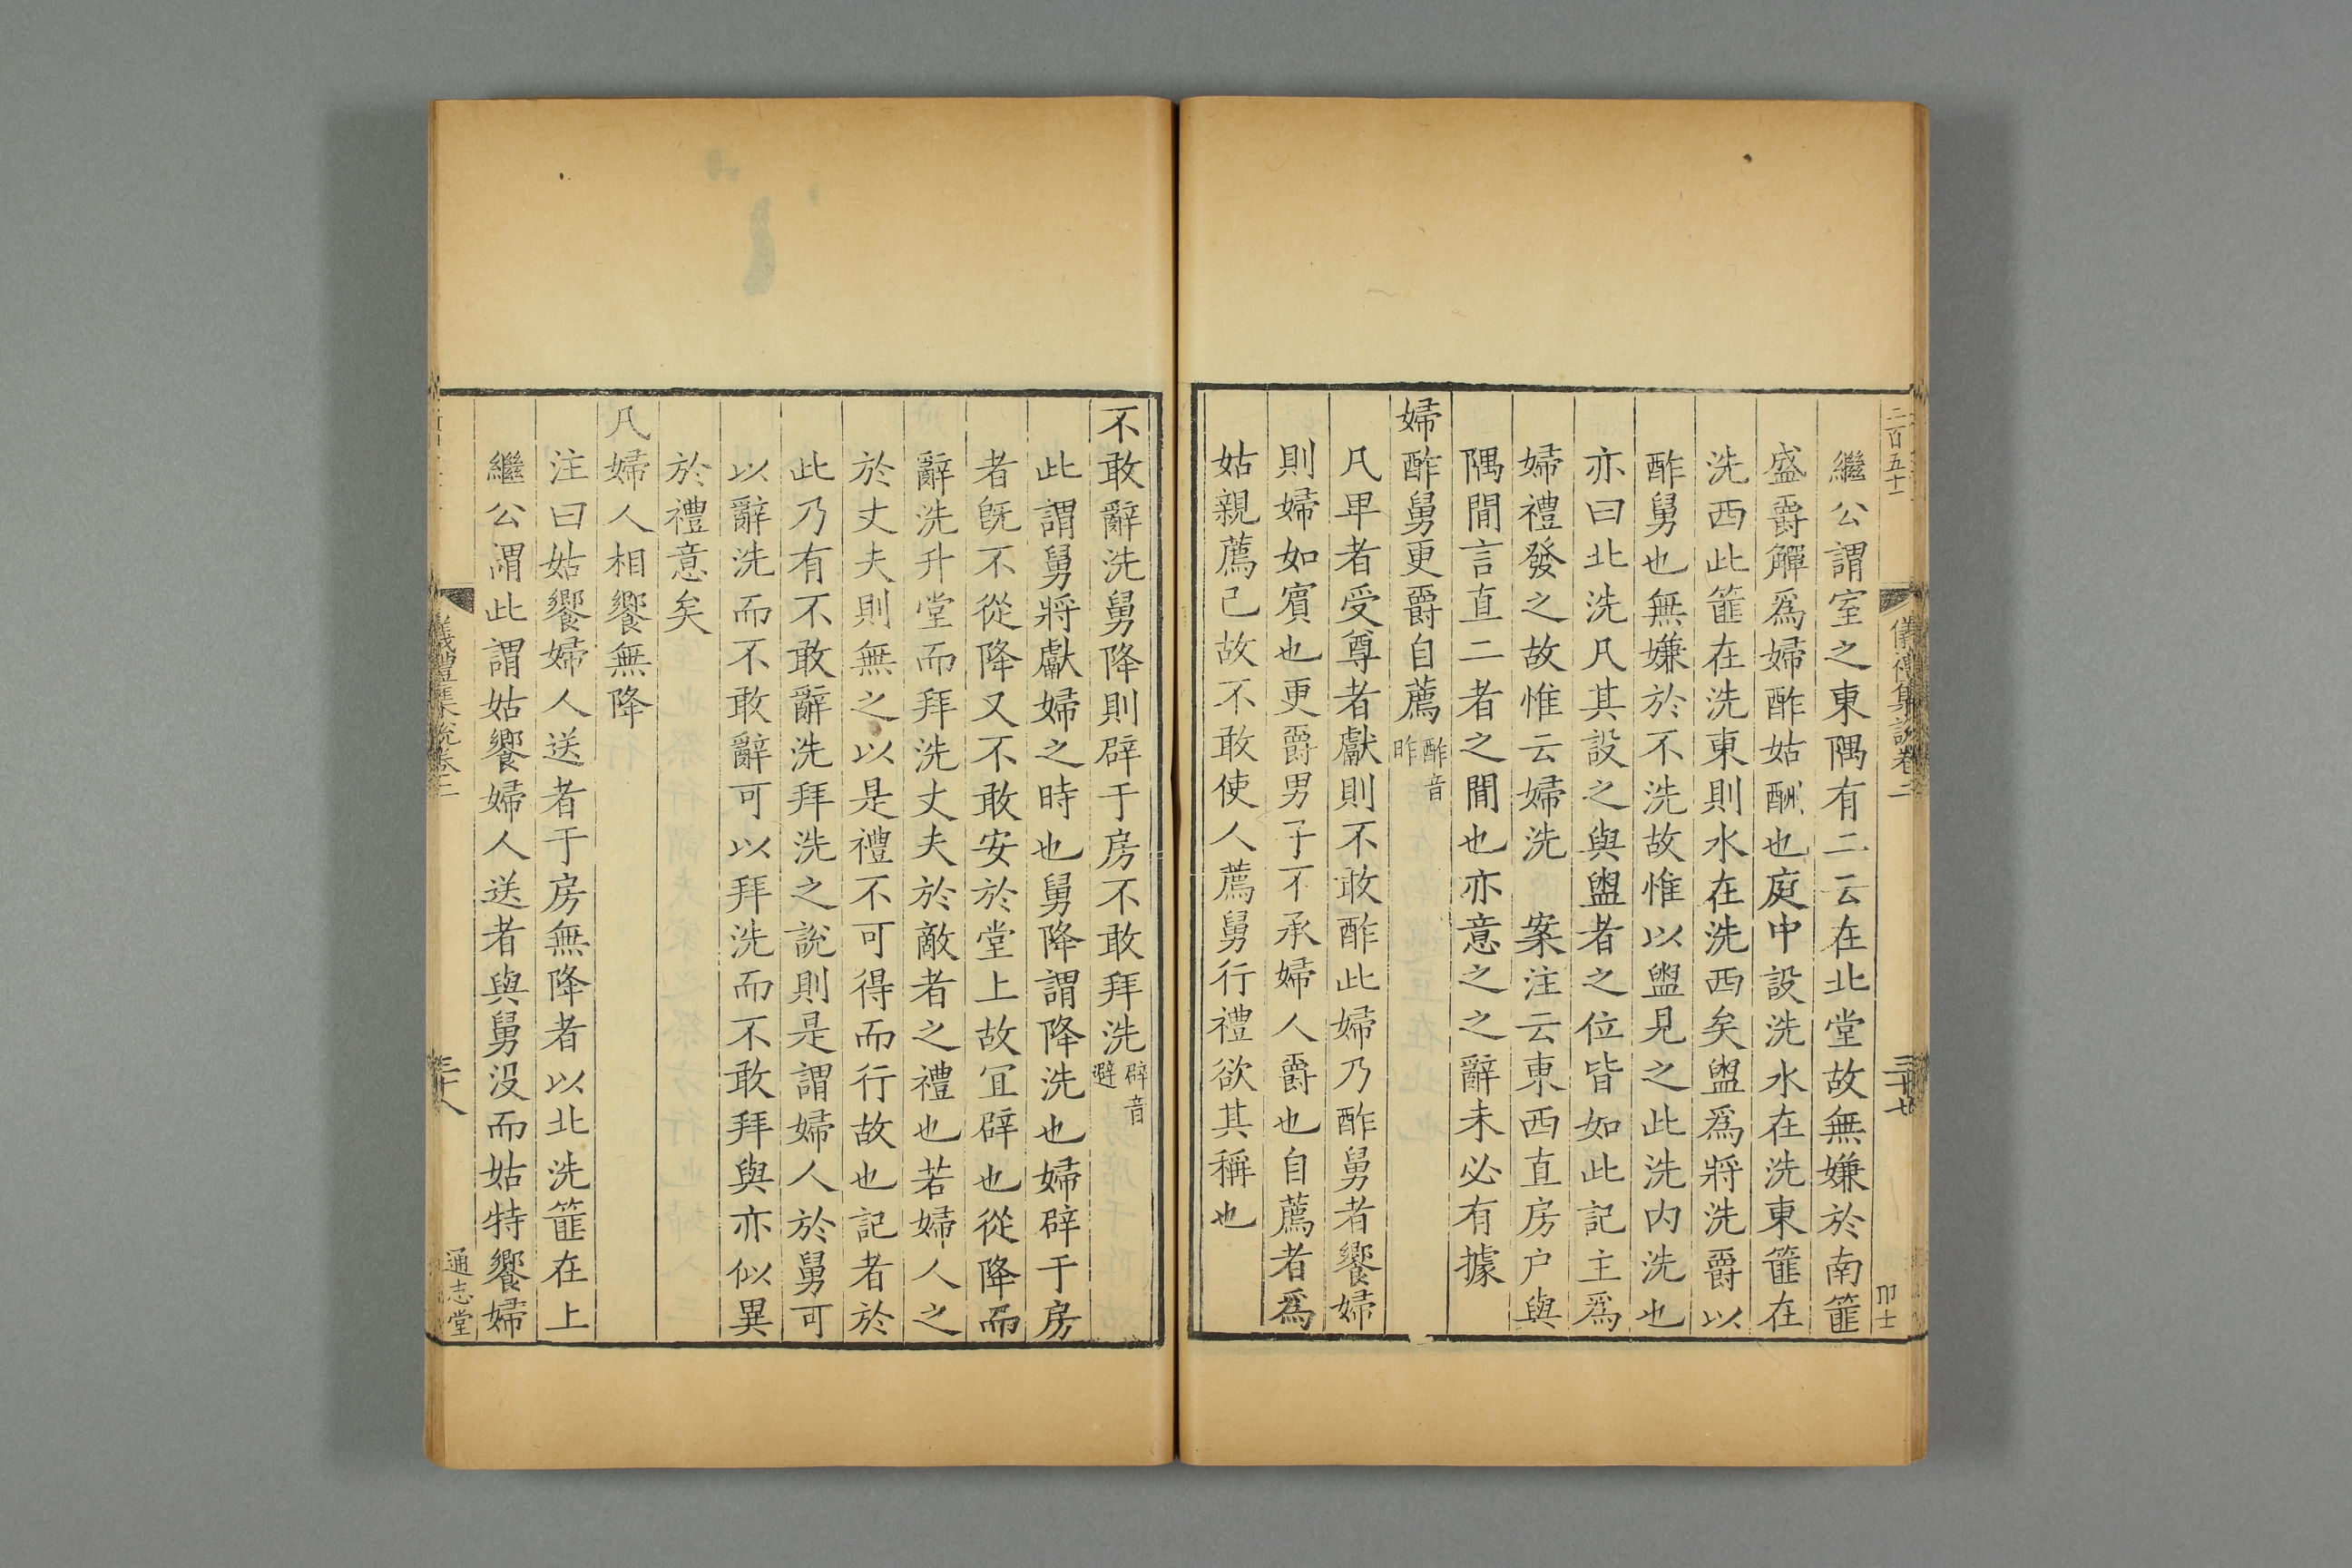 二百五十
儀禮集說卷二
三十七
卩士
繼公謂室之東隅有二云在北堂故無嫌於南篚
盛爵觶爲婦酢姑酬也庭中設洗水在洗東篚在
洗西此篚在洗東則水在洗西矣盥爲將洗爵以
酢舅也無嫌於不洗故惟以盥見之此洗内洗也
亦曰北洗凡其設之與盥者之位皆如此記主爲
婦禮發之故惟云婦洗 案注云東西直房户與
隅間言直二者之間也亦意之之辭未必有據
婦酢舅更爵自薦酢音昨
凡卑者受尊者獻則不敢酢此婦乃酢舅者饗婦
則婦如賓也更爵男子不承婦人爵也自薦者爲
姑親薦己故不敢使人薦舅行禮欲其稱也
不敢辭洗舅降則辟于房不敢拜洗辟音避
此謂舅將獻婦之時也舅降謂降洗也婦辟于房
者旣不從降又不敢安於堂上故冝辟也從降而
辭洗升堂而拜洗丈夫於敵者之禮也若婦人之
於丈夫則無之以是禮不可得而行故也記者於
此乃有不敢辭洗拜洗之說則是謂婦人於舅可
以辭洗而不敢辭可以拜洗而不敢拜與亦似異
於禮意矣
凡婦人相饗無降
注曰姑饗婦人送者于房無降者以北洗篚在上
繼公謂此謂姑饗婦人送者與舅没而姑特饗婦
儀禮集說卷二
三十八
通志堂